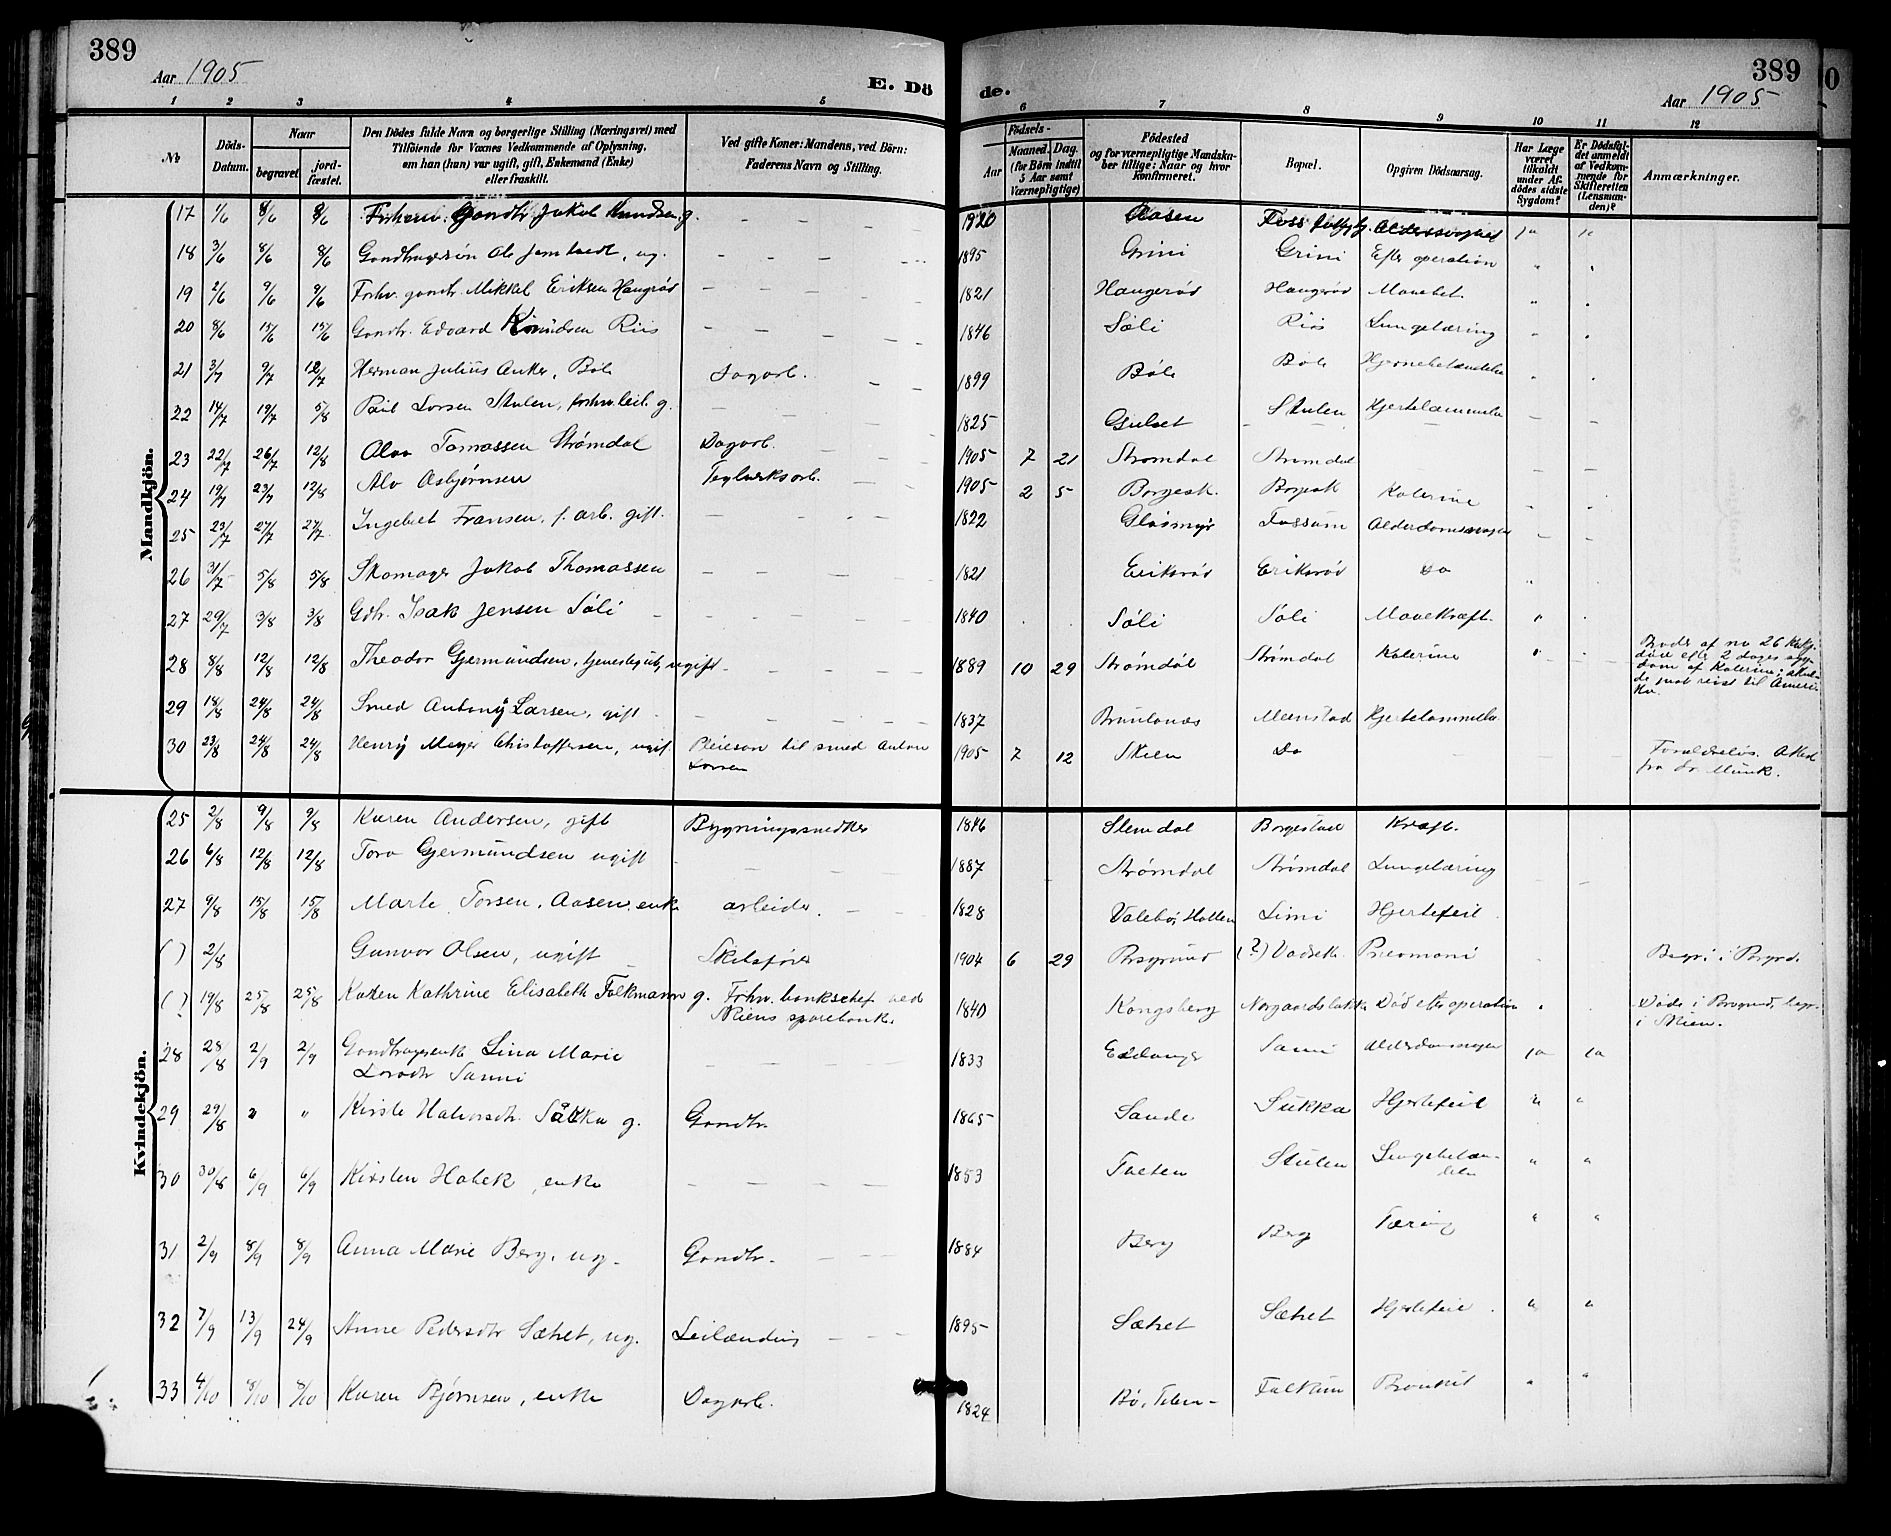 389
Aar 1905
E. Dö
de.
389
Aar 1905
1 2 3 4 5 6 7 8 9 10 11 12
№
Döds-Datum.
Naar
begravet
jordfæstet.
Den Dödes fulde Navn og borgerlige Stilling (Næringsvei) med
Tilföiende for Voxnes Vedkommende af Oplysning,
om han (hun) var ugift, gift, Enkemand (Enke)
eller fraskilt.
Ved gifte Koner: Mandens, ved Börn:
Faderens Navn og Stilling.
Födsels-
Aar
Maaned. Dag.
(for Börn indtil 5 Aar samt Værnepligtige)
Födested
og for værnepligtige Mandskaber tillige: Naar og hvor konfirmeret.
Bopæl.
Opgiven Dödsaarsag.
Har Læge været tilkaldt under Afdödes sidste Sygdom?
Er Dödsfaldet anmeldt af Vedkommende for Skifteretten (Lensmanden)?
Anmærkninger.
Mandkjön.
17 1/6 8/6 8/6 Forhenv. Gaardbr. Jakob Knudsen g. 1820 Aasen Foss Alderssvaghed ja
18 3/6 8/6 8/6 Gaardbrugersøn Ole ug. 1895 Grini Grini Efter operation
19 2/6 9/6 9/6 Forhv. gaardbr. Mikkel Eriksen Haugrød 1821 Haugerød Haugerød
20 8/6 15/6 15/6 Gaardbr. Edvard Knudsen Riis 1846 Søli Riis Lungetæring
21 3/7 9/7 12/7 Herman Julius Anker, Bøle Dagarb. 1899 Bøle Bøle Hjernebetændelse
22 14/7 19/7 5/8 Paul Larsen Stulen, forhv. leil. g. 1825 Gulset Stulen Hjertelammelse
23 22/7 26/7 12/8 Alva Tomassen Strømdal Dagarb. 1905 7 21 Strømdal Strømdal
24 19/7 23/7 12/8 Alv Asbjørnsen Teglverksarb. 1905 2 5 Borgesk. Borgesk Kolerine
25 23/7 27/7 27/7 Ingebret Fransen, f. arb. gift. 1822 Glasmyr Fossum
26 31/7 5/8 5/8 Skomager Jakob Thomassen 1821 Eriksrød Eriksrød Do
27 29/7 3/8 3/8 Gdbr. Isak Jensen Søli 1840 Søli Søli Mavekræft.
28 8/8 12/8 12/8 Theodor Gjermundsen, tjenestegut, ugift 1889 10 29 Strømdal Strømdal Kolerine Broder af no 26 Kvkj.
døde efter 2 dages sygdom
af Kolerine; skulde
just reist til Amerika.
29 18/8 24/8 24/8 Smed Anton Larsen, gift 1837 Brunlanes Menstad Hjertelammelse
30 23/8 24/8 24/8 Henry Meyer Christoffersen, ugift Pleiesøn til smed Anton
Larsen 1905 7 12 Skien Do Forældreløs. Attest
fra dr. Munk.
Kvindekjön.
25 2/8 9/8 9/8 Karen Andersen, gift Bygningssnedker 1846 Slemdal Borgestad Kræft.
26 6/8 12/8 12/8 Tora Gjermundsen ugift 1887 Strømdal Strømdal Lungetæring
27 9/8 15/8 15/8 Marte Torsen, Aasen, enke arbeider. 1828 Valebø, Hollen Limi Hjertefeil
( ) 2/8 Gunvor Olsen, ugift Skibsfører 1904 6 29 Porsgrund (?) Pneomoni Begr. i Porsgrd.
( ) 19/8 25/8 25/8 Karen Kathrine Elisabeth Falkmann g. Forhv. bankchef ved
Skiens sparebank. 1840 Kongsberg Død efter operation Døde i Porsgrund, begr.
i Skien.
28 28/8 2/9 2/9 Gaardbrugerenke Lina Marie
Larsdtr Sanni 1833 Eidanger Sanni ja ja
29 29/8 " " Kirste Halvorsdtr. Sukka g. Gaardbr. 1865 Sande Sukka Hjertefeil " "
30 30/8 6/9 6/9 Kirsten Habek, enke 1853 Taeten Stulen Lungebetændelse " "
31 2/9 8/9 8/9 Anna Marie Berg, ug. Gaardbr. 1884 Berg Berg Tæring " "
32 7/9 13/9 24/9 Anne Pedersdtr Sætret, ug. Leilænding 1895 Sætret Sætret Hjertefeil " "
33 4/10 8/10 8/10 Karen Bjørnsen, enke Dagarb. 1824 Bø, Telem- Falkum Bronkit " "